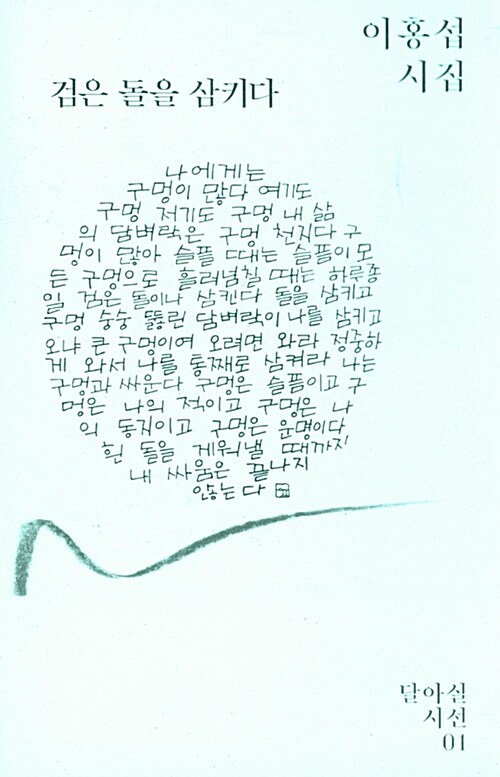 이홍섭
시집
검은 돌을 삼키다
나에게는
구멍이 많다 여기도
구멍 저기도 구멍 내 삶
의 담벼락은 구멍 천지다 구
멍이 많아 슬플 때는 슬픔이 모
든 구멍으로 흘러넘칠 때는 하루종
일 검은 돌이나 삼킨다 돌을 삼키고
구멍 숭숭 뚫린 담벼락이 나를 삼키고
오냐 큰 구멍이여 오려면 와라 정중하
게 와서 나를 통째로 삼켜라 나는
구멍과 싸운다 구멍은 슬픔이고 구
멍은 나의 적이고 구멍은 나
의 동지이고 구멍은 운명이다
흰 돌을 게워낼 때까지
내 싸움은 끝나지
않는다
달아실
시선
01